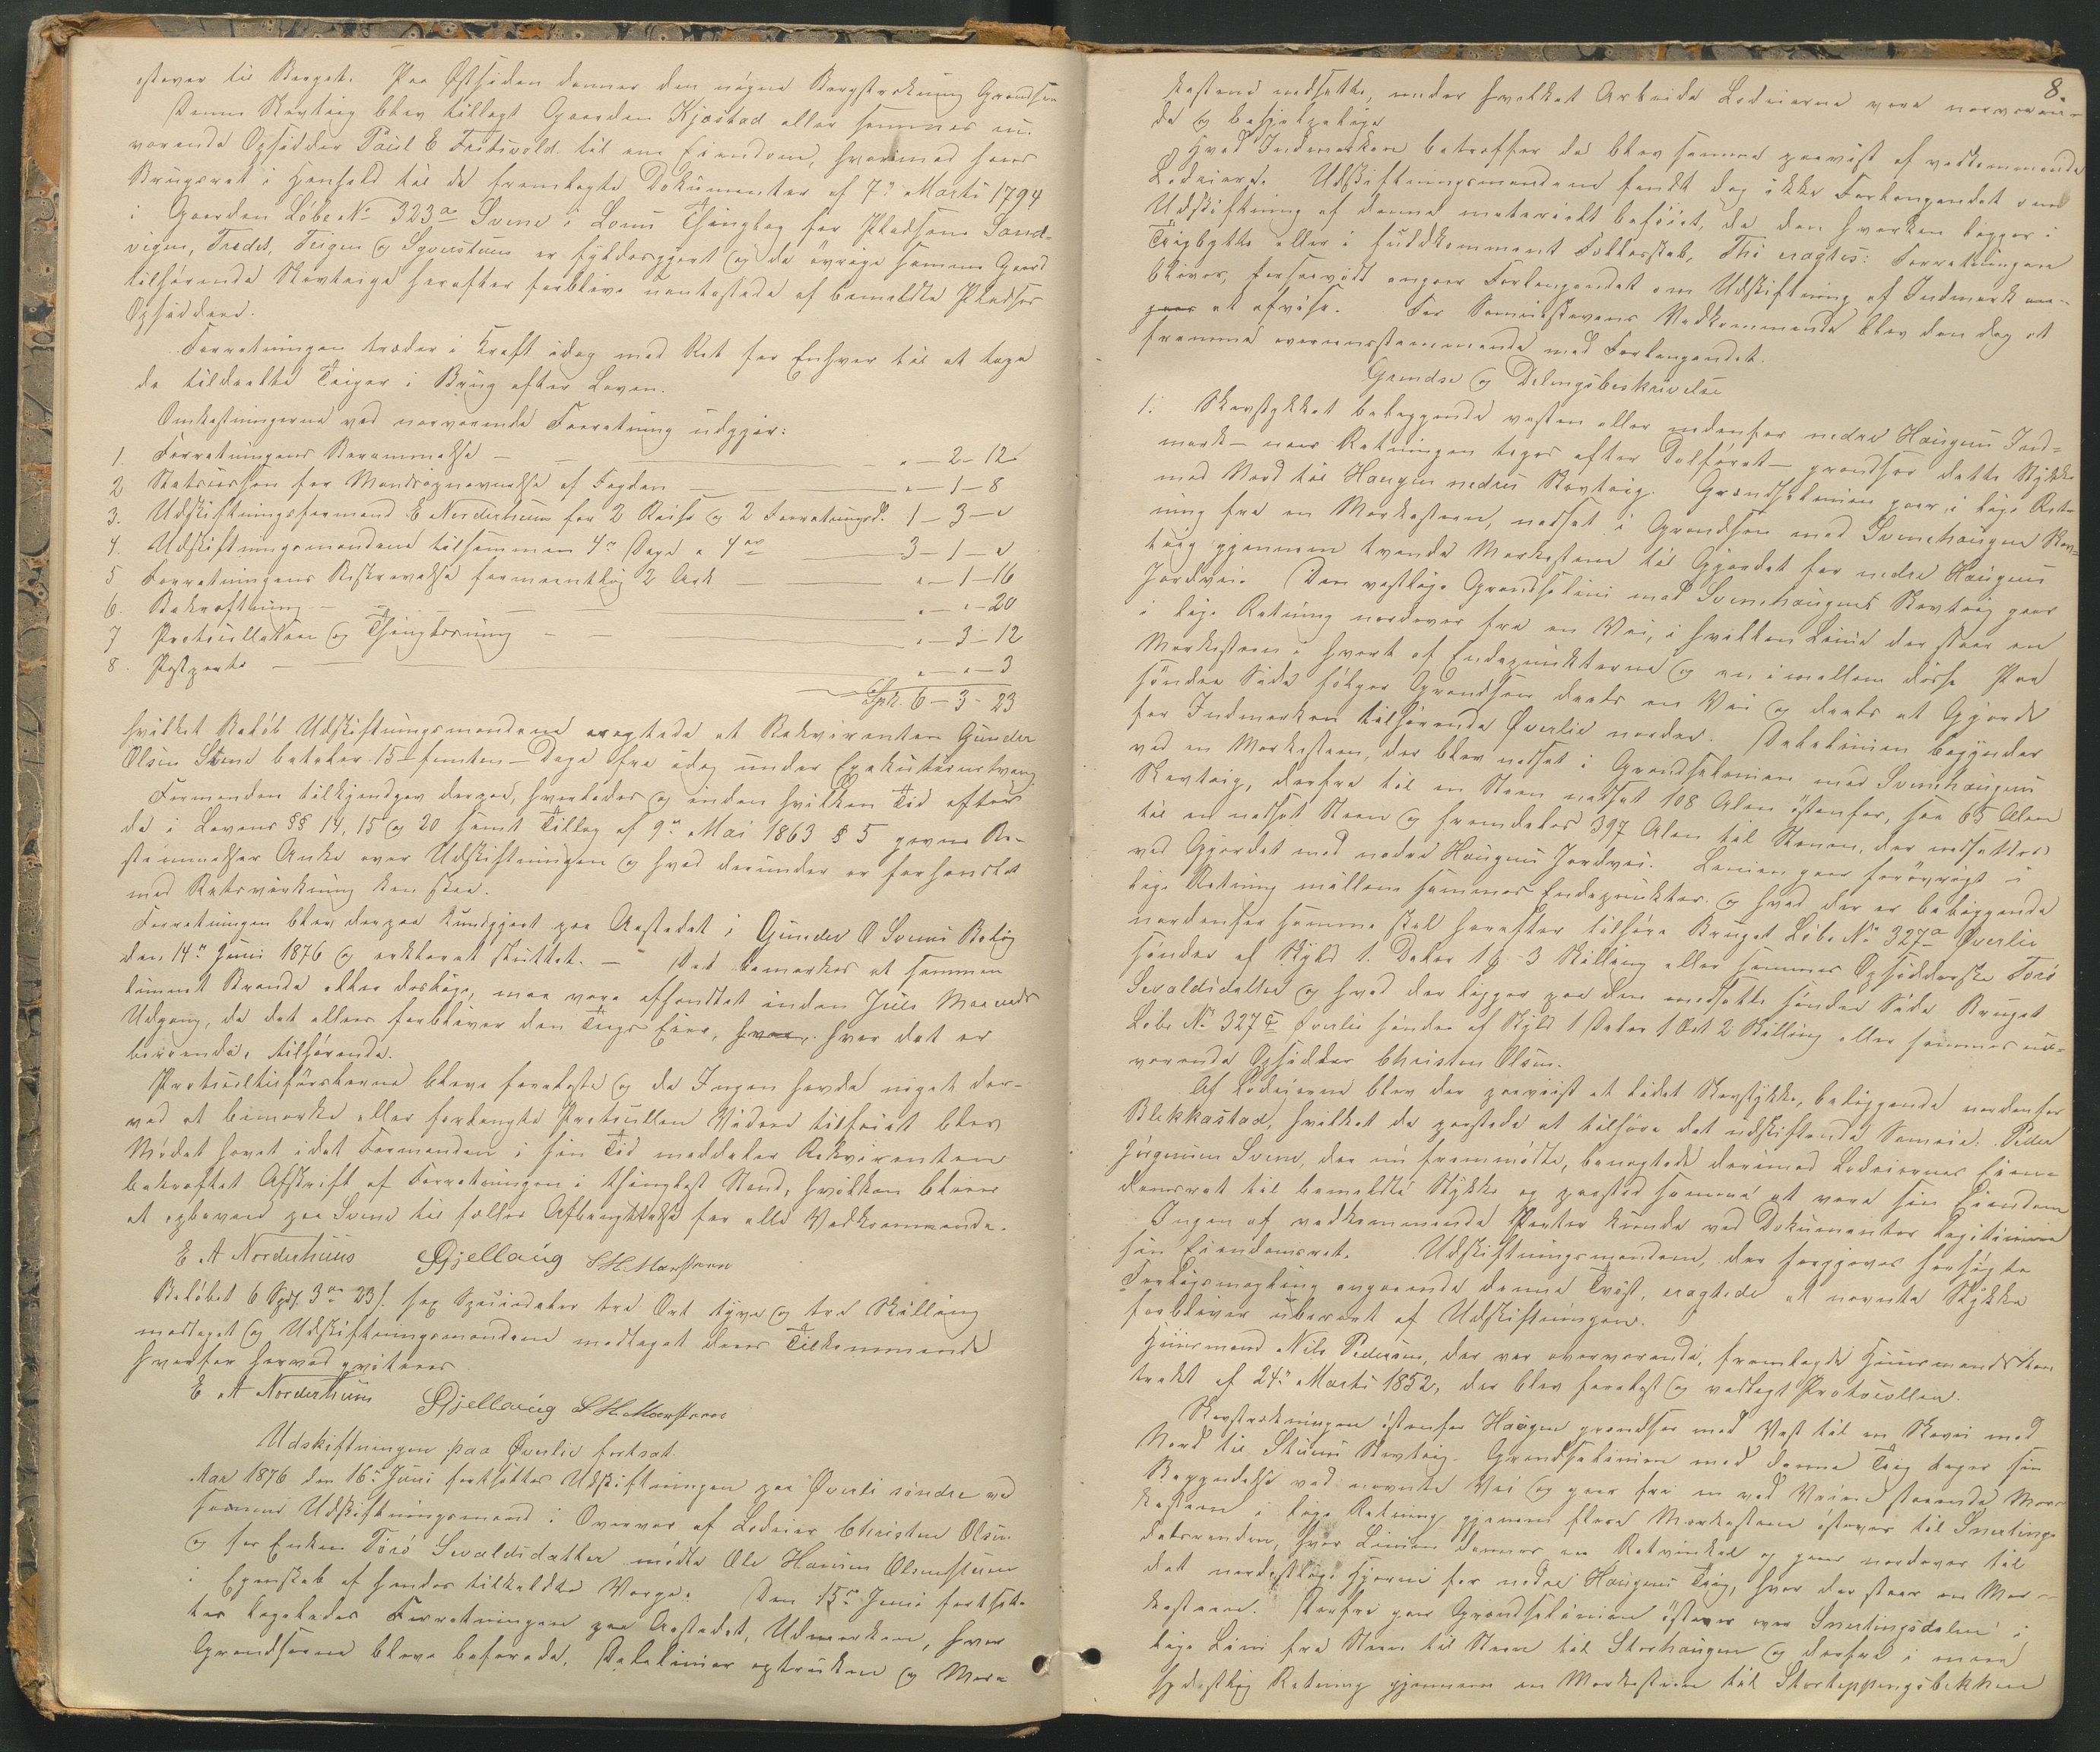 østover til Berget. Paa Østsiden danner den nøgne Bergstrekning Grendsen
Denne Skovteig blev tillagt Gaarden Kjøstad eller sammes nu-
værende Opsidder Paul E Tustvold til ene Eiendom, hvorimod hans
Brugsret i Henhold til de fremlagte Dokumenter af 7de Marts 1794
i Gaarden Løbe No 323a Svene i Lows Thinglag for Pladsene Sand-
vigen, Trædet, Teigen og er fyldesgjort og de øvrige samme Gaard
tilhørende Skovteige herefter forblive uantastede af bemeldte Pladses
Opsiddere.
Forretningen træder i Kraft idag med Ret for Enhver til at tage
de tildeelte Teiger i Brug efter Loven.
Omkostningerne ved nærværende Forretning udgjør:
1. Forretningens Berammelse — „ — 2 – 12
2 for Mandsopnævnelse af Fogden — „ – 1 – 8
3. Udskiftningsformand E Norderhuus for 2 Reise og 2 Forretningsd. 1 – 3 – „
4. Udskiftningsmændene tilsammen 4re Dage a 4 ort 3 – 1 – „
5 Forretningens Beskrivelse formeentlig 2 Ark — „ – 1 – 16
6. Bekræftning — „ – „ – 20
7 Protocollation og Thinglæsning — „ – 3 – 12
8. Postporto — „ – „ – 3
Spd. 6 – 3 – 23
hvilket Beløb Udskiftningsmændene eragtede at Rekvirenten Gunder
Olsen Svene betaler 15 – femten – Dage fra idag under Exekutionstvang
Formanden tilkjendegav derpaa, hvorledes og inden hvilken Tid efter
de i Lovens §§ 14, 15 og 20 samt Tillæg af 9de Mai 1863 § 5 givne Be-
stemmelser Anke over Udskiftningen og hvad derunder er forhandlet
med Retsvirkning kan skee.
Forretningen blev derpaa kundgjort paa Aastedet i Gunder O Svenes Bolig
den 14de Juni 1876 og erklæret sluttet. — Det bemærkes at sammen
kommet Brænde eller desliges, maa være afhændtet inden Juli Maaneds
Udgang, da det ellers forbliver den Teigs Eier, hvor hvor det er
beroende, tilhørende.
Protocoltilførslerne bleve forelæste og da Ingen havde noget der-
ved at bemærke eller forlangte Protocollen Videre tilføiet blev
Mødet hævet idet Formanden i sin Tid meddeler Rekvirenten
bekræftet Afskrift af Forretningen i thinglæst Stand, hvilken bliver
at opbevare paa Svene til fælles Afbenyttelse for alle Vedkommende.
E A Norderhuus Gjellaug S H Moestuen
Beløbet 6 Spd. 3 ort 23 s. sex Speciedaler tre Ort tyve og tre Skilling
modtaget og Udskiftningsmændene modtaget deres Tilkommende
hvorfor herved qvitteres
E A Norderhuus Gjellaug S H Moestuen
Udskiftningen paa Øverlie fortsat.
Aar 1876 den 16de Juni fortsattes Udskiftningen paa Øverli søndre ved
samme Udskiftningsmænd i Overvær af Lodeier Christen Olsen
og for Enken Toro Sevaldsdatter mødte Ole Hansen
i Egenskab af hendes tilkaldte Værge. Den 15de Juni fortsat-
tes ligeledes Forretningen paa Aastedet, Udmarken, hvor
Grendserne bleve befarede, Delelinier optrukne og Mær-
8.
kestene nedsatte, under hvilket Arbeide Lodeierne vare nærværen-
de og behjælpelige
Hvad Indmarken betræffer da blev samme paavist af vedkommende
Lodeiere. Udskiftningsmændene fandt dog ikke Forlangendet om
Udskiftning af denne materielt beføiet, da den hverken ligger i
Teigbytte eller i fuldkomment Fællesskab, Thi eragtes: Forretningen
bliver, forsaavidt angaar Forlangendet om Udskiftning af Indmark an-
gaar at afvise. For Sameiskovens Vedkommende blev den dog at
fremme overensstemmende med Forlangendet.
Grendse og Delingsbeskrivelse
1. Skovstykket beliggende vesten eller nedenfor nedre Haugens Ind-
mark – naar Retningen tages efter Dalføret – grendser dette Stykke
mod Nord til Haugen nedres Skovteig. Grendselinien gaar i lige Ret-
ning fra en Merkesteen, nedsat i Grendsen med Svenehaugens Skov-
teig gjennem tvende Merkestene til Gjerdet for nedre Haugens
Jordvei. Den vestlige Grendselinie med Svenehaugens Skovteig gaar
i lige Retning nordover fra en Vei, i hvilken Linie der staar en
Merkesteen i hvert af Endepunkterne og en imellem disse Paa
søndre Side følger Grendsen deels en Vei og deels et Gjerde
for Indmarken tilhørende Øverlie nordre. Delelinien begynder
ved en Merkesteen, der blev nedsat i Grendselinien med Svenehaugens
Skovteig, derfra til en Steen nedsat 108 Alen østenfor, saa 65 Alen
til en nedsat Steen og fremdeles 397 Alen til Stenen, der nedsattes
ved Gjerdet mod nedre Haugens Jordvei. Linien gaar forøvrigt i
lige Retning mellem sammes Endepunkter og hvad der er beliggende
nordenfor samme skal herefter tilhøre Bruget Løbe No 327a Øverlie
søndre af Skyld 1. Daler 1 Ort 3 Skilling eller sammes Opsidderske Toro
Sevaldsdatter og hvad der ligger paa den modsatte søndre Side Bruget
Løbe No 327c Øverlie søndre af Skyld 1 Daler 1 Ort 2 Skilling eller sammes nu-
værende Opsidder Christen Olsen.
Af Lodeierne blev der paaviist et lidet Skovstykke, beliggende nordenfor
Blekkastad, hvilket de paastode at tilhøre det udskiftende Sameie. Peder
Jørgensen Svene, der nu fremmødte, benegtede derimod Lodeiernes Eien-
domsret til bemeldte Stykke og paastod samme at være sin Eiendom
Ingen af vedkommende Parter kunde ved Dokumenter legitimere
sin Eiendomsret. Udskiftningsmændene, der forgjæves forsøgte
Forligsmægling angaaende denne Tvist, eragtede at nævnte Stykke
forbliver uberørt af Udskiftningen.
Huusmand Nils Pedersen, der var overværende, fremlagde Huusmandskon
trakt af 24de Marts 1852, der blev forelæst og vedlagt Protocollen.
Skovstrekningen østenfor Haugen grendser mod Vest til en Skovvei mod
Nord til Stuens Skovteig. Grendselinien med denne Teig tager sin
Begyndelse ved nævnte Vei og gaar fra en ved Veien staaende Mær-
kesteen i lige Retning gjennem flere Merkestene østover til Snertings-
dalsrenden, hvor Linien danner en Retvinkel og gaar nordover til
det nordøstlige Hjørne for nedre Haugens Teig, hvor der staar en Mær-
kesteen. Derfra gaar Grendselinien østover over Snertingsdalen i
lige Linie fra Steen til Steen til Storhaugen og derfra i mere
sydøstlig Retning gjennem en Merkesteen til Storteppingsbekken